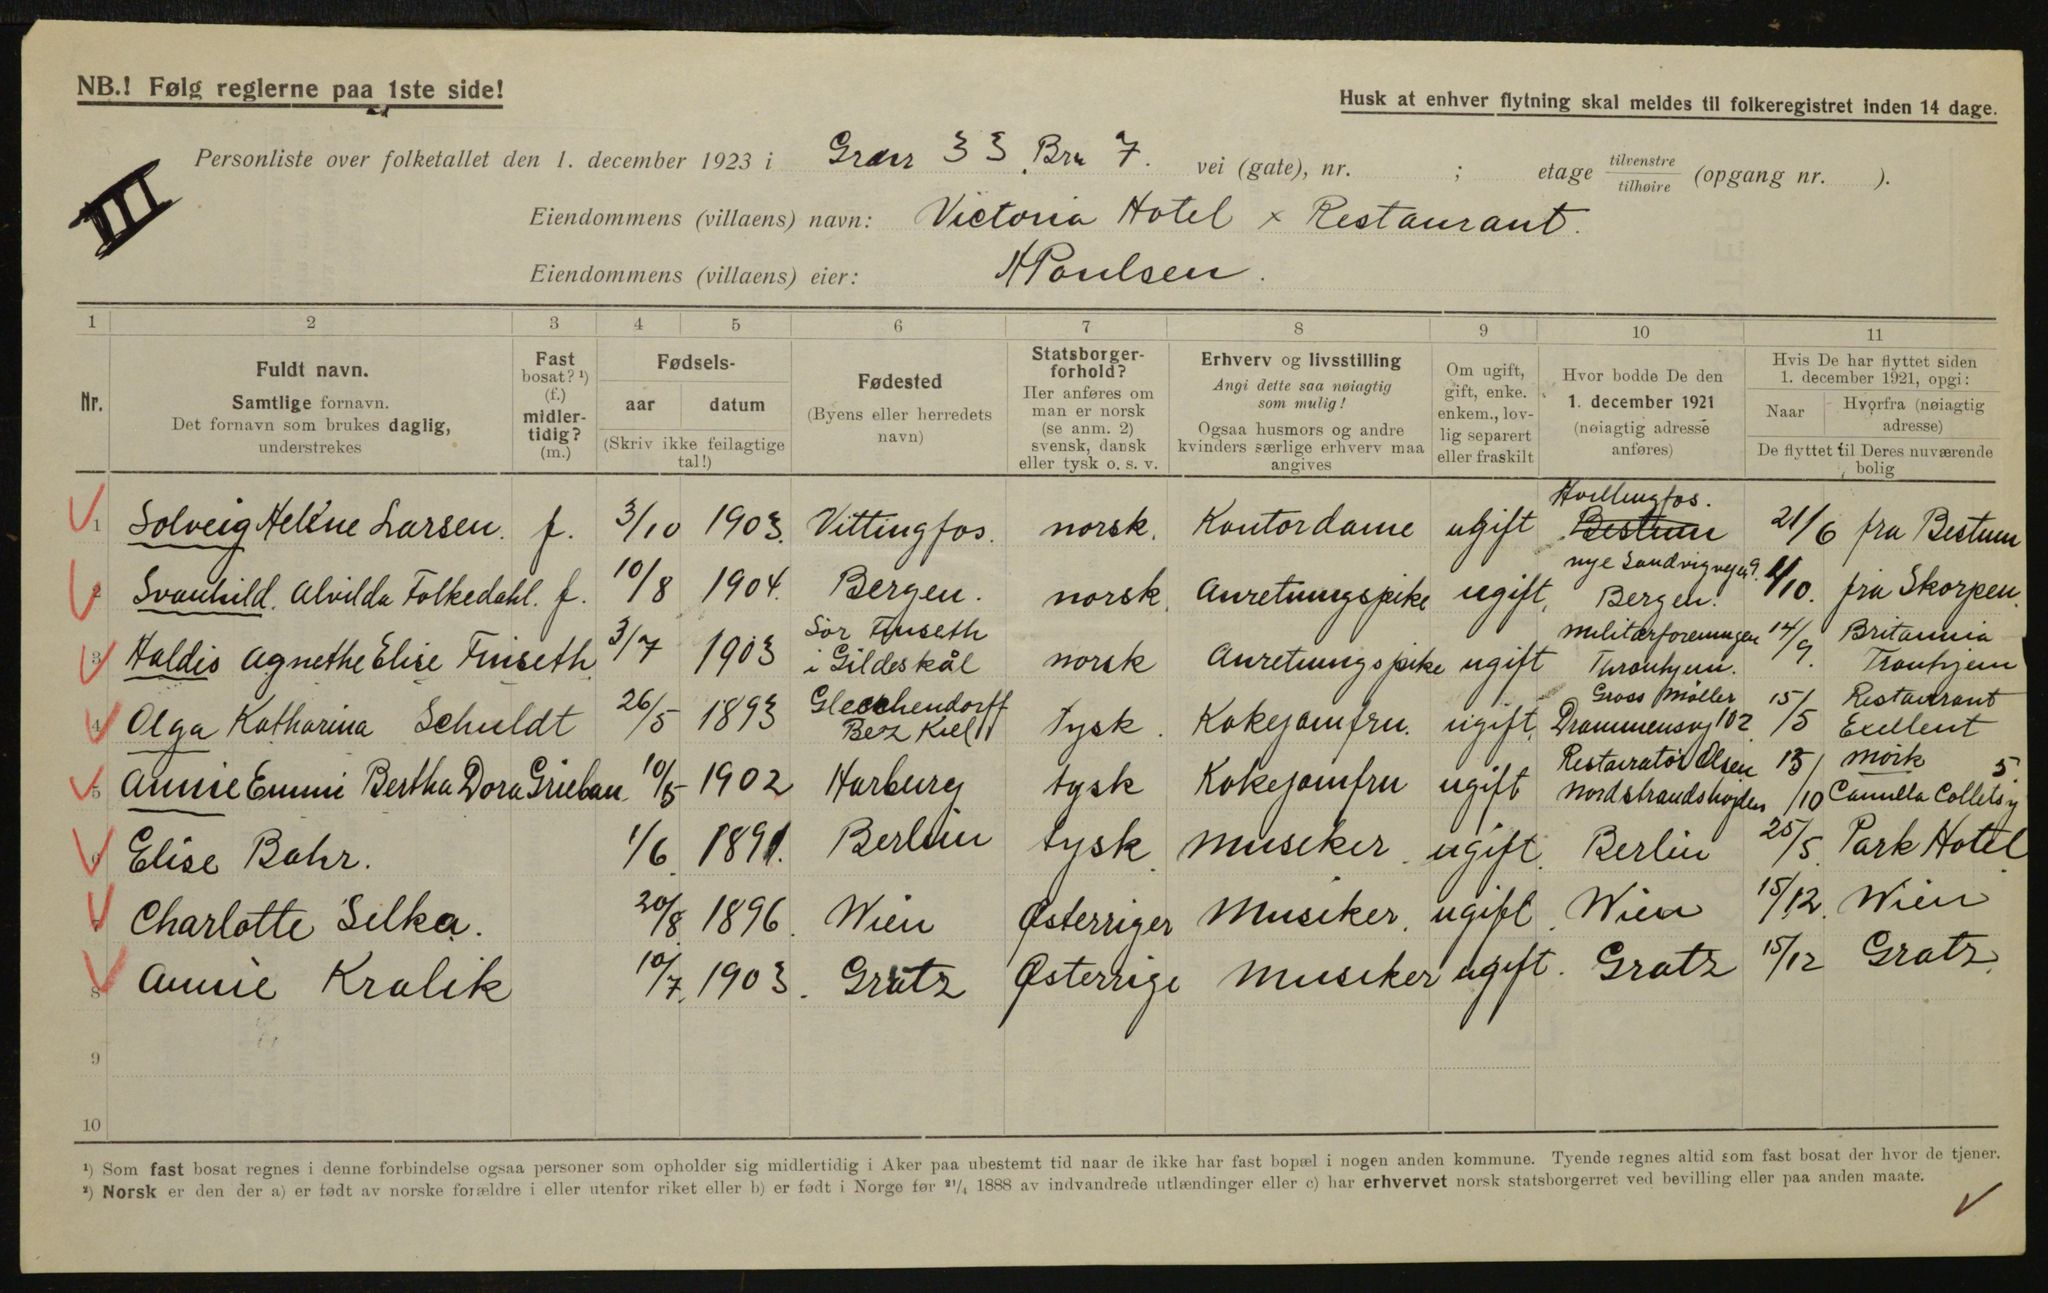 NB.! Følg reglerne paa 1ste side!
Husk at enhver flytning skal meldes til folkeregistret inden 14 dage.
III
Personliste over folketallet den 1. december 1923 i Gnr 33 Brn 7. vei (gate), nr. ; etage tilvenstre/tilhøire (opgang nr. ).
Eiendommens (villaens) navn: Victoria Hotel x Restaurant.
Eiendommens (villaens) eier: Poulsen.
1 2 3 4 5 6 7 8 9 10 11
Nr.
Fuldt navn.
Samtlige fornavn.
Det fornavn som brukes daglig,
understrekes
Fast
bosat? ¹)
(f.)
midler-
tidig?
(m.)
Fødsels-
aar datum
(Skriv ikke feilagtige
tal!)
Fødested
(Byens eller herredets
navn)
Statsborger-
forhold?
Her anføres om
man er norsk
(se anm. 2)
svensk, dansk
eller tysk o. s. v.
Erhverv og livsstilling
Angi dette saa nøiagtig
som mulig!
Ogsaa husmors og andre
kvinders særlige erhverv maa
angives
Om ugift,
gift, enke.
enkem., lov-
lig separert
eller fraskilt
Hvor bodde De den
1. december 1921
(nøiagtig adresse
anføres)
Hvis De har flyttet siden
1. december 1921, opgi:
Naar
Hvorfra (nøiagtig
adresse)
De flyttet til Deres nuværende
bolig
1 Solveig Helene Larsen. f. 3/10 1903. Vittingfos. norsk. Kontordame ugift Hvittingfos. Bestum 21/6 fra Bestum
2 Svanhild. Alvilda Folkedahl. f. 10/8 1904. Bergen. norsk. Anretningspike ugift, nye Sandvigvej 9. Bergen. /10. fra Skorpen.
3 Haldis Agnethe Elise Finseth 3/7 1903 Sör Finseth i Gildeskål norsk Anretningspike ugift Militærforeningen Tronhjem. 14/9. Britannia Tronhjem
4 Olga Katharina Schuldt 26/5 1893 Bez Kiel tysk. Kokejomfru. ugift. Gross Møller Drammensvj 102 15/5 Restaurant Exellent
5 Annie Emmi Bertha Dora Grieban. 10/5 1902 Harburg tysk Kokejomfru ugift Restauratør Olsen Nordstrandshøjden /10 Mørk 5 Camilla Colletsv
6 Elise Bahr. 1/6. 1891. Berlin tysk. Musiker. ugift. Berlin 25/5. Park Hotel
7 Charlotte Selka. 20/8. 1896. Wien Østerriger Musiker. ugift. Wien 15/12. Wien
8 Annie Kralik 10/7. 1903. Gratz Østerrige Musiker ugift. Gratz 15/12 Gratz.
9
10
¹) Som fast bosat regnes i denne forbindelse ogsaa personer som opholder sig midlertidig i Aker paa ubestemt tid naar de ikke har fast bopæl i nogen anden kommune. Tyende regnes altid som fast bosat der hvor de tjener.
²) Norsk er den der a) er født av norske forældre i eller utenfor riket eller b) er født i Norge før ²¹/₄ 1888 av indvandrede utlændinger eller c) har erhvervet norsk statsborgerret ved bevilling eller paa anden maate.